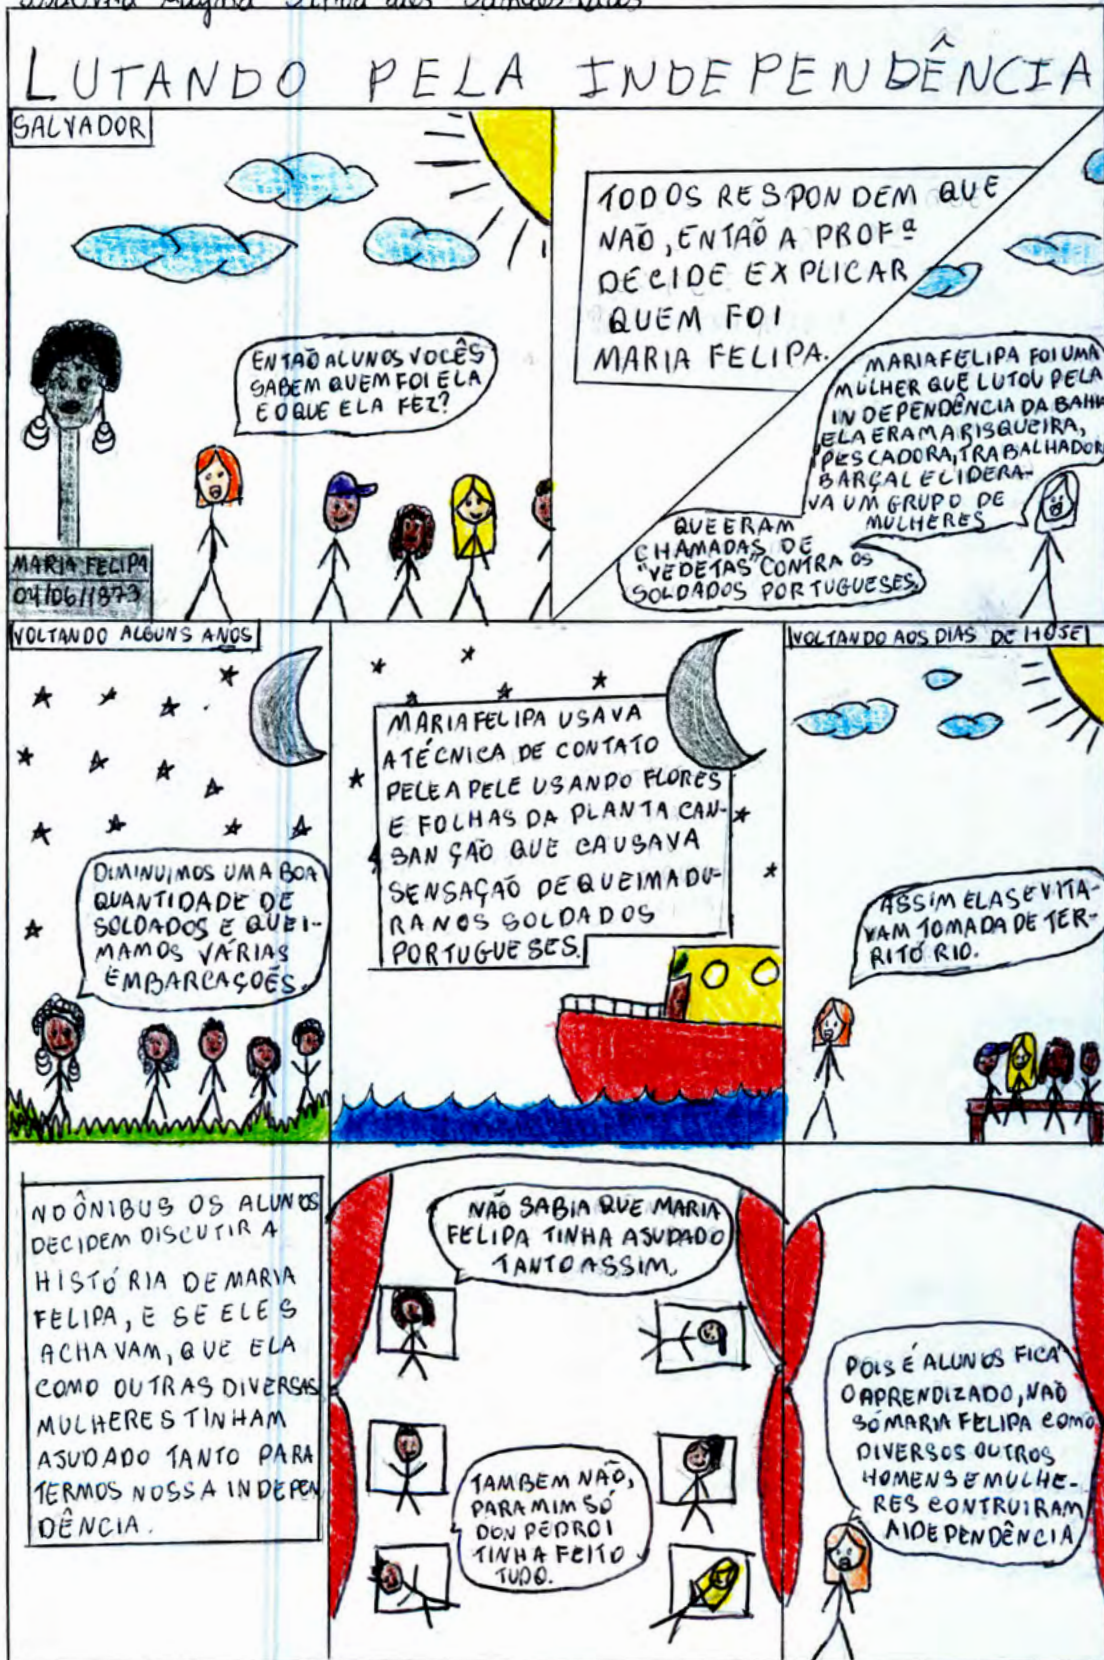 LUTANDO PELA INDEPENDÊNCIA
SALVADOR
ENTÃO ALUNOS VOCÊS
SABEM QUEM FOI ELA
E O QUE ELA FEZ?
MARIA FELIPA
04/06/1873
TODOS RESPONDEM QUE
NÃO, ENTÃO A PROFª
DECIDE EXPLICAR
QUEM FOI
MARIA FELIPA.
MARIA FELIPA FOI UMA
MULHER QUE LUTOU PELA
INDEPENDÊNCIA DA BAHIA
ELA ERA MARISQUEIRA,
PESCADORA, TRABALHADOR
BARÇAL E LIDERA-
VA UM GRUPO DE
MULHERES
QUE ERAM
CHAMADAS DE
"VEDETAS" CONTRA OS
SOLDADOS PORTUGUESES.
VOLTANDO ALGUNS ANOS
DIMINUIMOS UMA BOA
QUANTIDADE DE
SOLDADOS E QUEI-
MAMOS VÁRIAS
EMBARCAÇÕES.
MARIA FELIPA USAVA
A TÉCNICA DE CONTATO
PELE A PELE USANDO FLORES
E FOLHAS DA PLANTA CAN-
SANÇÃO QUE CAUSAVA
SENSAÇÃO DE QUEIMADU-
RA NOS SOLDADOS
PORTUGUESES.
VOLTANDO AOS DIAS DE HOJE
ASSIM ELAS EVITA-
VAM TOMADA DE TER-
RITÓRIO.
NO ÔNIBUS OS ALUNOS
DECIDEM DISCUTIR A
HISTÓRIA DE MARIA
FELIPA, E SE ELES
ACHAVAM, QUE ELA
COMO OUTRAS DIVERSAS
MULHERES TINHAM
AJUDADO TANTO PARA
TERMOS NOSSA INDEPEN
DÊNCIA.
NÃO SABIA QUE MARIA
FELIPA TINHA AJUDADO
TANTO ASSIM.
TAMBEM NÃO,
PARA MIM SÓ
DON PEDRO I
TINHA FEITO
TUDO.
POIS É ALUNOS FICA
O APRENDIZADO, NAO
SÓ MARIA FELIPA COMO
DIVERSOS OUTROS
HOMENS E MULHE-
RES CONTRUIRAM
A IDEPENDÊNCIA